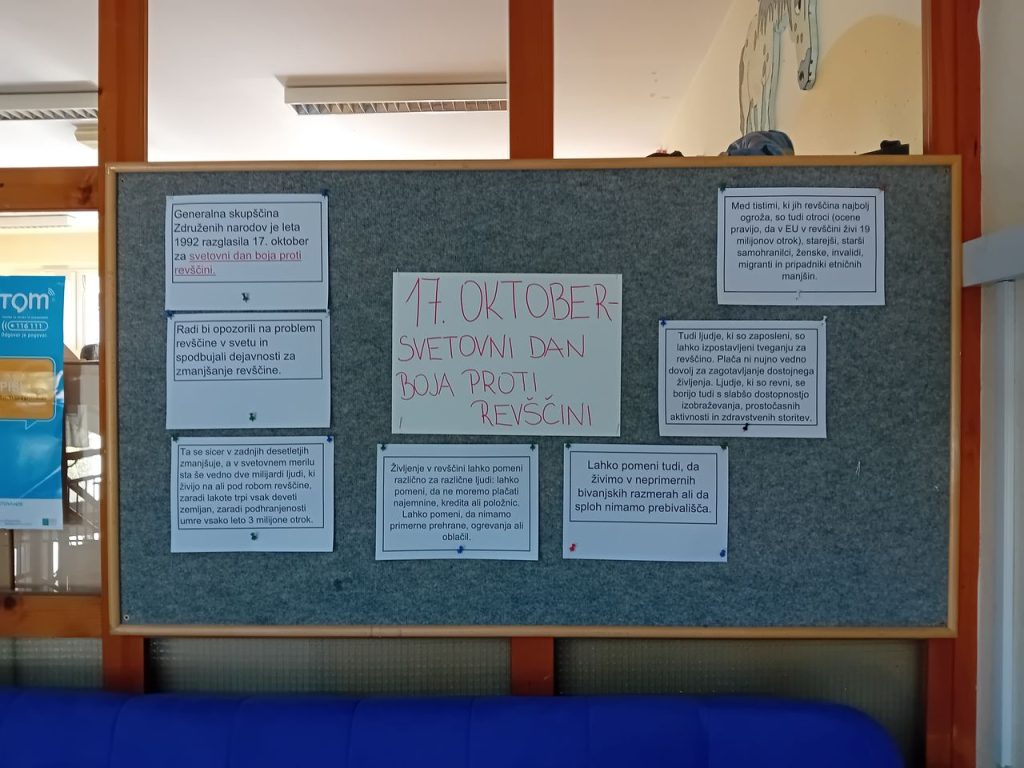 Generalna skupščina
Združenih narodov je leta
1992 razglasila 17. oktober
za svetovni dan boja proti
revščini.
Radi bi opozorili na problem
revščine v svetu in
spodbujali dejavnosti za
zmanjšanje revščine.
Ta se sicer v zadnjih desetletjih
zmanjšuje, a v svetovnem merilu
sta še vedno dve milijardi ljudi, ki
živijo na ali pod robom revščine,
zaradi lakote trpi vsak deveti
zemljan, zaradi podhranjenosti
umre vsako leto 3 milijone otrok.
17. OKTOBER-
SVETOVNI DAN
BOJA PROTI
REVŠČINI
Življenje v revščini lahko pomeni
različno za različne ljudi: lahko
pomeni, da ne moremo plačati
najemnine, kredita ali položnic.
Lahko pomeni, da nimamo
primerne prehrane, ogrevanja ali
oblačil.
Lahko pomeni tudi, da
živimo v neprimernih
bivanjskih razmerah ali da
sploh nimamo prebivališča.
Med tistimi, ki jih revščina najbolj
ogroža, so tudi otroci (ocene
pravijo, da v EU v revščini živi 19
milijonov otrok), starejši, starši
samohranilci, ženske, invalidi,
migranti in pripadniki etničnih
manjšin.
Tudi ljudje, ki so zaposleni, so
lahko izpostavljeni tveganju za
revščino. Plača ni nujno vedno
dovolj za zagotavljanje dostojnega
življenja. Ljudje, ki so revni, se
borijo tudi s slabšo dostopnostjo
izobraževanja, prostočasnih
aktivnosti in zdravstvenih storitev.
TOM
116 111